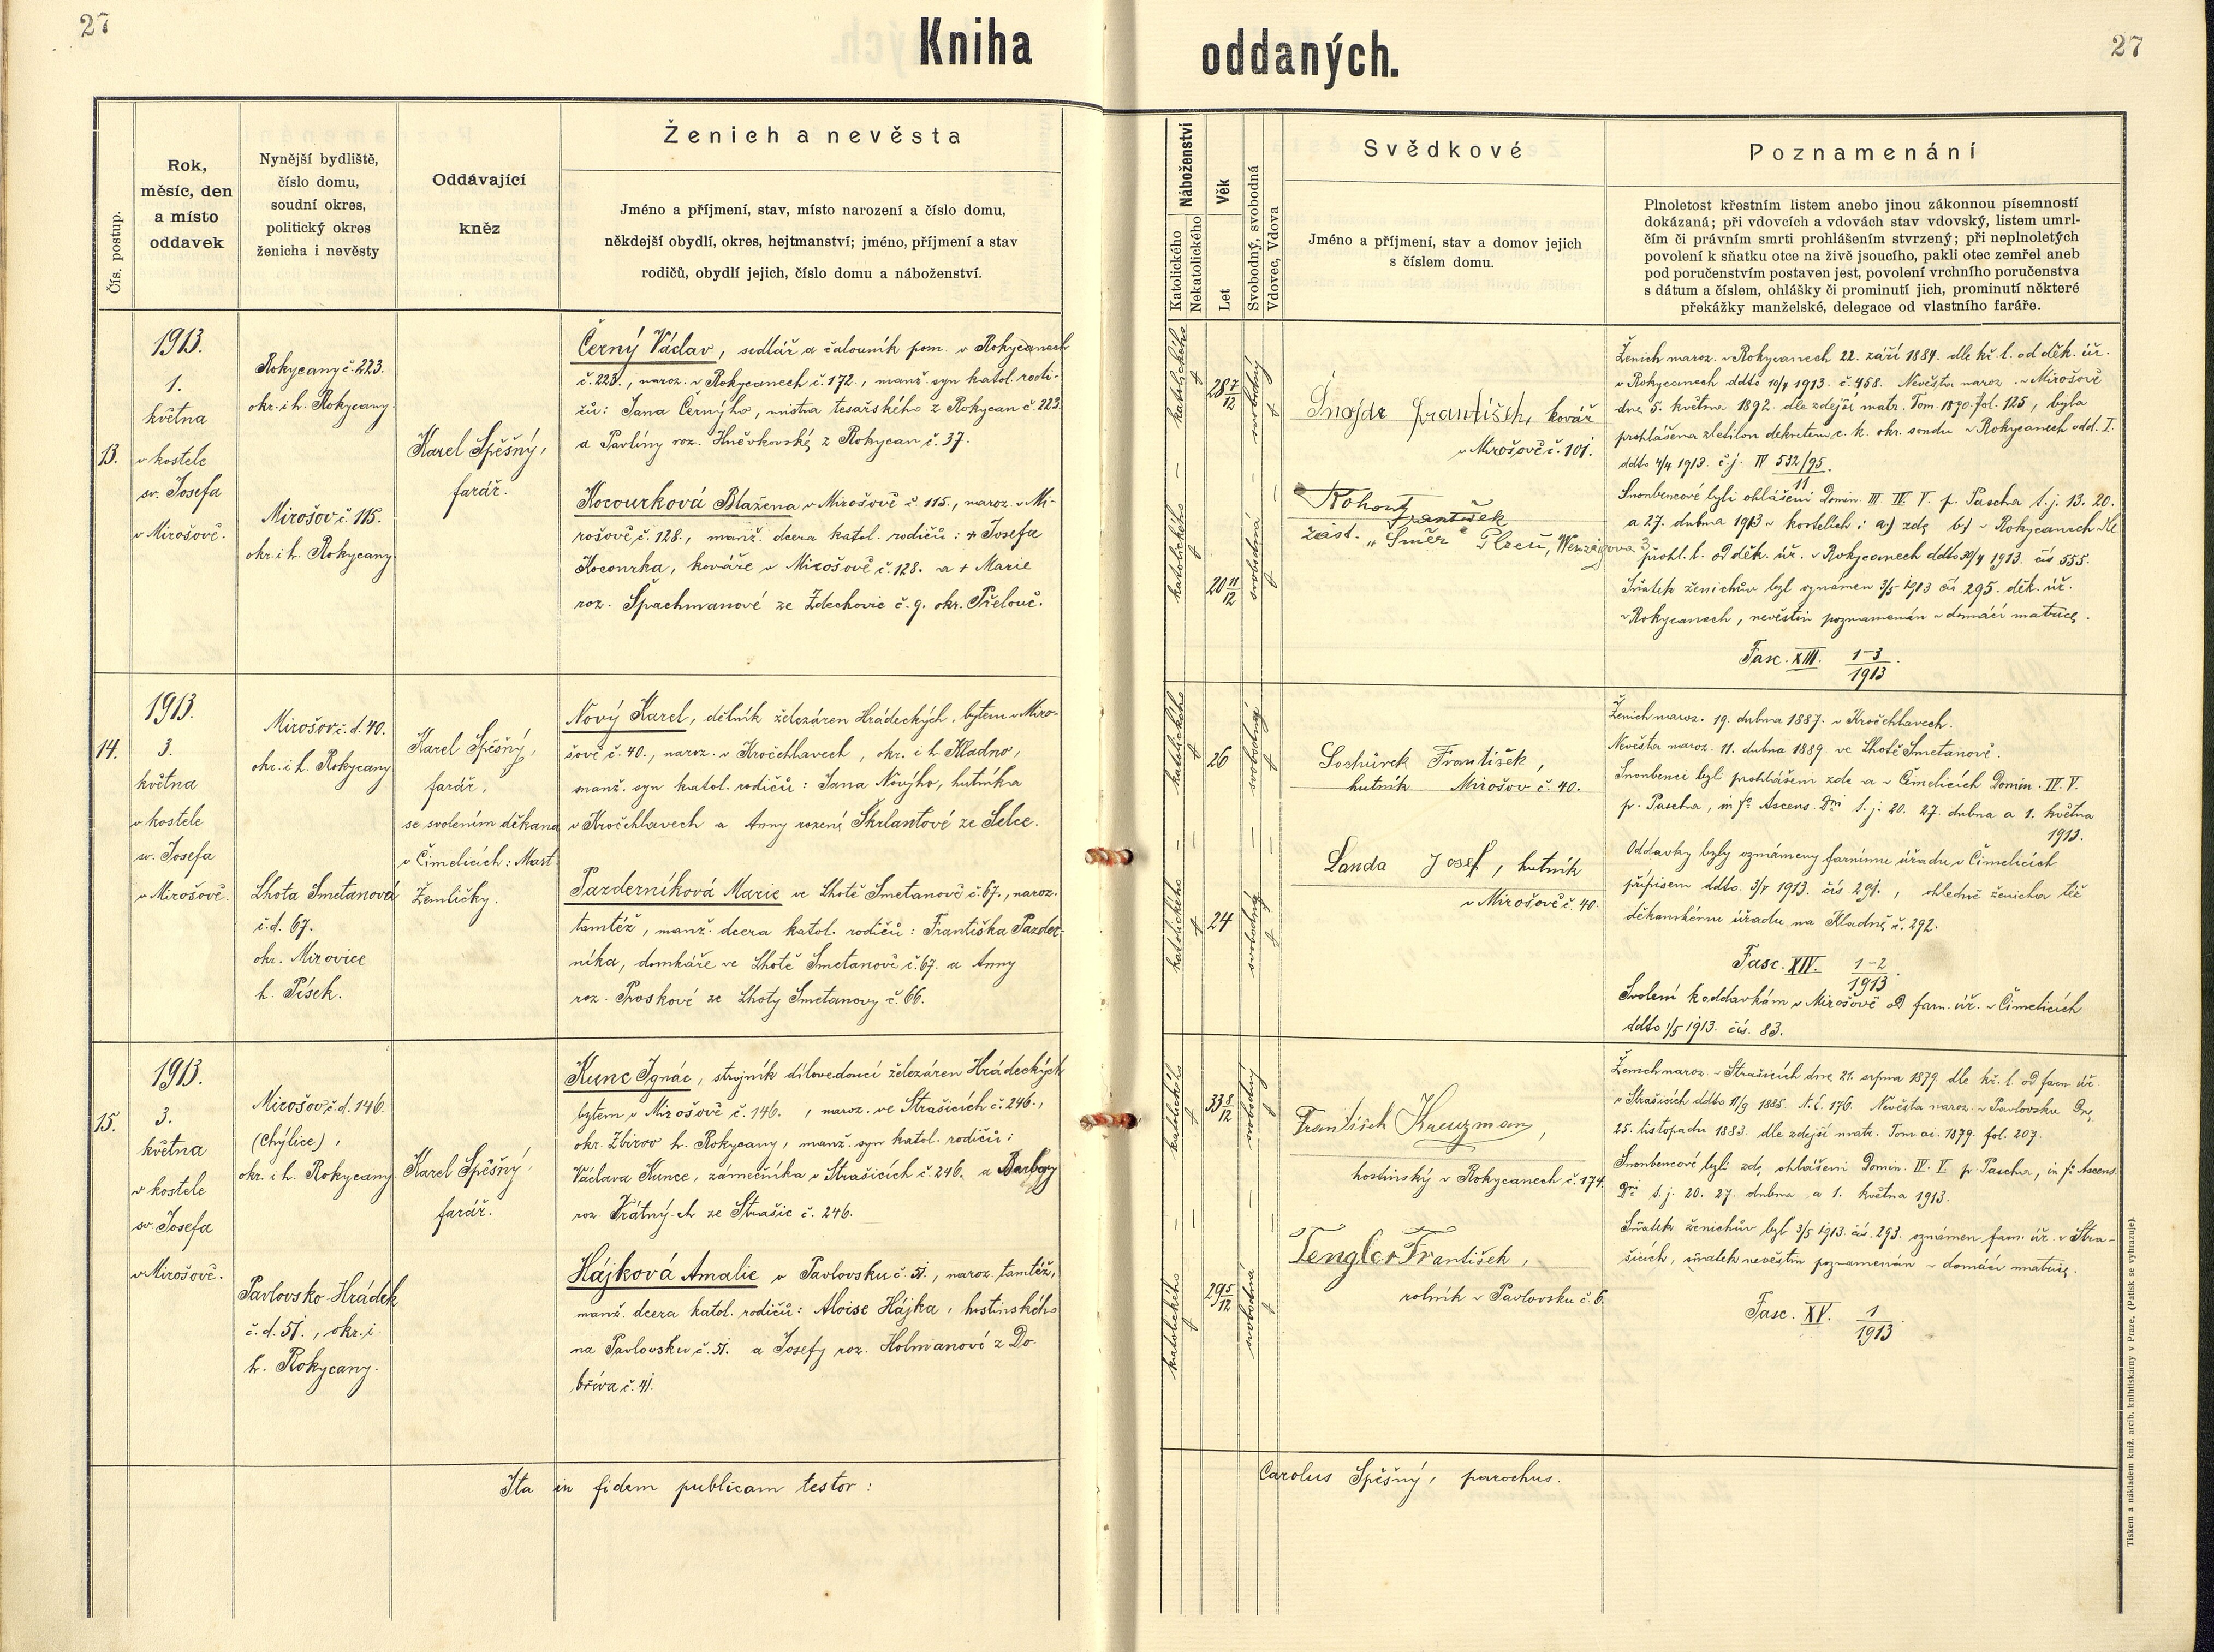 27
Kniha
oddaných.
27
Čís. postup.
Rok,
měsíc, den
a místo
oddavek
Nynější bydliště,
číslo domu,
soudní okres,
politický okres
ženicha i nevěsty
Oddávající
kněz
Ženich a nevěsta
Jméno a příjmení, stav, místo narození a číslo domu,
někdejší obydlí, okres, hejtmanství; jméno, příjmení a stav
rodičů, obydlí jejich, číslo domu a náboženství.
Náboženství
Katolického
Nekatolického
Věk
Let
Svobodný, svobodná
Vdovec, Vdova
Svědkové
Jméno a příjmení, stav a domov jejich
s číslem domu.
Poznamenání
Plnoletost křestním listem anebo jinou zákonnou písemností
dokázaná; při vdovcích a vdovách stav vdovský, listem umrl-
čím či právním smrti prohlášením stvrzený; při neplnoletých
povolení k sňatku otce na živě jsoucího, pakli otec zemřel aneb
pod poručenstvím postaven jest, povolení vrchního poručenstva
s dátum a číslem, ohlášky či prominutí jich, prominutí některé
překážky manželské, delegace od vlastního faráře.
13.
1913.
1.
května
v kostele
sv. Josefa
v Mirošově.
Rokycany č. 223.
okr. i h. Rokycany.
Mirošov č. 115.
okr. i h. Rokycany.
Karel Spěšný,
farář.
Černý Václav, sedlář a čalouník pom. v Rokycanech
č. 223., naroz. v Rokycanech č. 172., manž. syn katol. rodi-
čů: Jana Černýho, mistra tesařského z Rokycan č. 223.
a Pavlíny roz. Hněvkovské z Rokycan č. 37.
Kocourková Blažena v Mirošově č. 115., naroz. v Mi-
rošově č. 128., manž. dcera katol. rodičů: + Josefa
Kocourka, kováře v Mirošově č. 128. a + Marie
roz. Špachmanové ze Zdechovic č. 9. okr. Přelouč.
katolického
28 7/12
svobodný
katolického
20 11/12
svobodná
Šnajdr František, kovář
v Mirošově č. 101.
Kohout
František
zást. „Směr" Plzeň, Wenzigova 3
Ženich naroz. v Rokycanech 22. září 1884. dle kř. l. od děk. úř.
v Rokycanech ddto 10/4 1913. č. 458. Nevěsta naroz. v Mirošově
dne 5. května 1892. dle zdejší matr. Tom. 1890. fol. 125, byla
prohlášena zletilou dekretem c. k. okr. soudu v Rokycanech odd. I.
ddto 4/4 1913. č. j. IV 532/95.
11
Snoubencové byli ohlášeni Domin. III IV V. p. Pascha t. j. 13. 20.
a 27. dubna 1913 v kostelích: a) zde b) v Rokycanech dle
prohl. l. od děk. úř. v Rokycanech ddto 30/4 1913. čís 555.
Sňatek ženichův byl oznámen 3/5 1913 čís. 295. děk. úř.
v Rokycanech, nevěstin poznamenán v domácí matrice.
Fasc. XIII. 1-3/1913.
14.
1913.
3.
května
v kostele
sv. Josefa
v Mirošově.
Mirošov č. d. 40.
okr. i h. Rokycany
Lhota Smetanová
č. d. 67.
okr. Mirovice
h. Písek.
Karel Spěšný,
farář,
se svolením děkana
v Čimelicích: Mart.
Žemličky.
Nový Karel, dělník železáren Hrádeckých, bytem v Miro-
šově č. 40., naroz. v Kročehlavech, okr. i h. Kladno,
manž. syn katol. rodičů: Jana Nového, hutníka
v Kročehlavech a Anny rozené Škrlantové ze Selce.
Pazderníková Marie ve Lhotě Smetanově č. 67., naroz.
tamtéž, manž. dcera katol. rodičů: Františka Pazder-
níka, domkáře ve Lhotě Smetanově č. 67. a Anny
roz. Proskové ze Lhoty Smetanovy č. 66.
katolického
26
svobodný
katolického
24
svobodná
Sochůrek František,
hutník Mirošov č. 40.
Landa Josef, hutník
v Mirošově č. 40.
Ženich naroz. 19. dubna 1887. v Kročehlavech.
Nevěsta naroz. 11. dubna 1889. ve Lhotě Smetanově.
Snoubenci byli prohlášeni zde a v Čimelicích Domin. IV. V.
p. Pascha, in fo Ascens. Dni t. j. 20. 27. dubna a 1. května
1913.
Oddavky byly oznámeny farnímu úřadu v Čimelicích
přípisem ddto 3/5 1913. čís. 291., ohledně ženicha též
děkanskému úřadu na Kladně č. 292.
Fasc. XIV. 1-2/1913.
Svolení k oddavkám v Mirošově od farn. úř. v Čimelicích
ddto 1/5 1913. čís. 83.
15.
1913.
3.
května
v kostele
sv. Josefa
v Mirošově.
Mirošov č. d. 146.
(Chýlice),
okr. i h. Rokycany.
Pavlovsko-Hrádek
č. d. 51., okr. i.
h. Rokycany.
Karel Spěšný,
farář.
Kunc Ignác, strojník dílovedoucí železáren Hrádeckých
bytem v Mirošově č. 146., naroz. ve Strašicích č. 246.,
okr. Zbirov h. Rokycany, manž. syn katol. rodičů:
Václava Kunce, zámečníka v Strašicích č. 246. a Barbory
roz. Vrátných ze Strašic č. 246.
Hájková Amalie v Pavlovsku č. 51., naroz. tamtéž,
manž. dcera katol. rodičů: Aloise Hájka, hostinského
na Pavlovsku č. 51. a Josefy roz. Holmanové z Do-
bříva č. 41.
katolického
33 8/12
svobodný
katolického
29 5/12
svobodná
František Kreuzman,
hostinský v Rokycanech č. 174.
Tengler František,
rolník v Pavlovsku č. 6.
Ženich naroz. v Strašicích dne 21. srpna 1879. dle kř. l. od farn. úř.
v Strašicích ddto 11/9 1885. N. E. 176. Nevěsta naroz. v Pavlovsku dne
25. listopadu 1883. dle zdejší matr. Tom ai. 1879. fol. 207.
Snoubencové byli zde ohlášeni Domin. IV. V. p. Pascha, in fo Ascens.
Dni t. j. 20. 27. dubna a 1. května 1913.
Sňatek ženichův byl 3/5 1913. čís. 293. oznámen farn. úř. v Stra-
šicích, sňatek nevěstin poznamenán v domácí matrice.
Fasc. XV. 1/1913
Ita in fidem publicam testor:
Carolus Spěšný, parochus.
Tiskem a nákladem kníž. arcib. knihtiskárny v Praze, (Patisk se vyhrazuje).